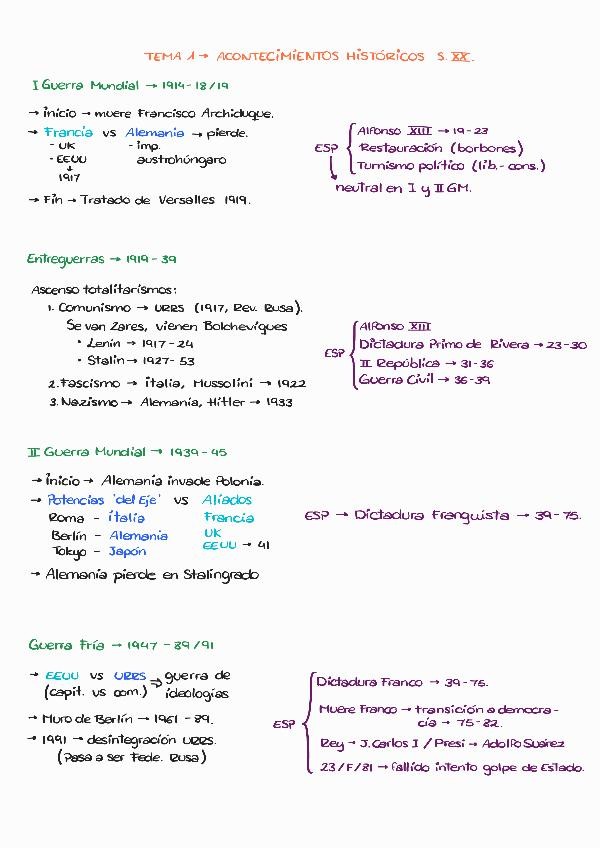 TEMA 1 → ACONTECIMIENTOS HISTÓRICOS S. XX.
I Guerra Mundial → 1914-18/19
→ inicio → muere Francisco Archiduque.
→ Francia vs Alemania → pierde.
- UK - imp.
- EEUU austrohúngaro
↓
1917
→ Fin → Tratado de Versalles 1919.
ESP
Alfonso XIII → 19-23
Restauración (borbones)
Turnismo político (lib.- cons.)
neutral en I y II GM.
Entreguerras → 1919-39
Ascenso totalitarismos:
1. Comunismo → URSS (1917, Rev. Rusa).
Se van Zares, vienen Bolcheviques
• Lenin → 1917-24
• Stalin → 1927-53
2. Fascismo → italia, Mussolini → 1922
3. Nazismo → Alemania, Hitler → 1933
ESP
Alfonso XIII
Dictadura Primo de Rivera → 23-30
II República → 31-36
Guerra Civil → 36-39
II Guerra Mundial → 1939-45
→ inicio → Alemania invade Polonia.
→ Potencias 'del Eje' vs Aliados
Roma - italia Francia
Berlín - Alemania UK
Tokyo - Japón EEUU → 41
→ Alemania pierde en Stalingrado
ESP → Dictadura Franquista → 39-75.
Guerra Fría → 1947-89/91
→ EEUU vs URSS ⇒ guerra de
(capit. vs com.) ideologías
→ Muro de Berlín → 1961-89.
→ 1991 → desintegración URSS.
(Pasa a ser Fede. Rusa)
ESP
Dictadura Franco → 39-75.
Muere Franco → transición a democra-
cia → 75-82.
Rey → J.Carlos I / Presi → Adolfo Suárez
23/F/81 → fallido intento golpe de Estado.